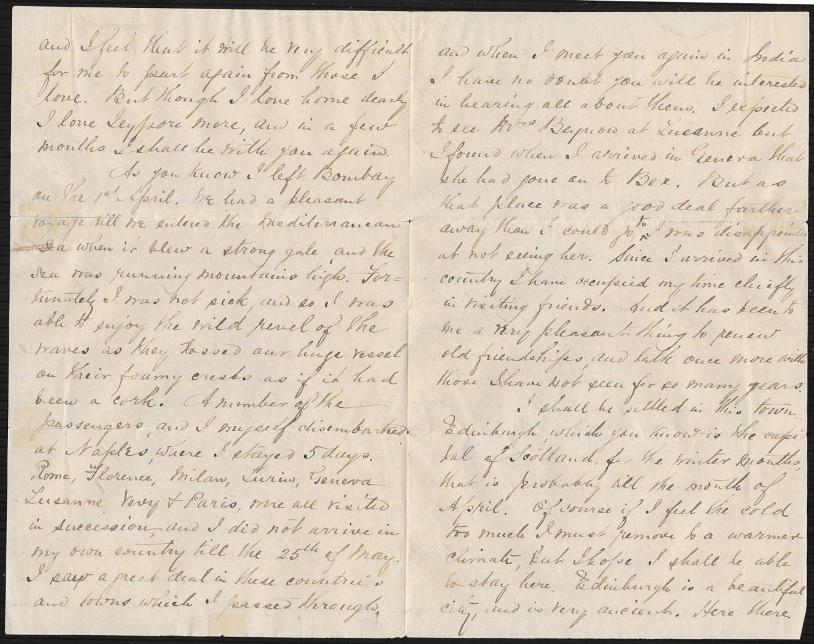 and I feel that it will be very difficult
for me to part again from those I
love. But though I love home dearly
I love Jeypore more, and in a few
months I shall be with you again.
As you know I left Bombay
on the 1st April. We had a pleasant
voyage till we entered the Mediterranean
Sea when it blew a strong gale, and the
sea was running mountains high. For=
tunately I was not sick, and so I was
able to enjoy the wild revel of the
waves as they tossed our huge vessel
on their foamy crests as if it had
been a cork. A number of the
passengers, and I myself disembarked
at Naples, where I stayed 5 days.
Rome, Florence, Milan, Turin, Geneva
Lusanne, Vevy & Paris, were all visited
in succession, and I did not arrive in
my own country till the 25th of May.
I saw a great deal in these countries
and towns which I passed through,
and when I meet you again in India
I have no doubt you will be interested
in hearing all about them. I expected
to see Mrs Beynon at Lusanne but
I found when I arrived in Geneva that
she had gone on to Bex. But as
that place was a good deal farther
away than I could go to I was disappointed
at not seeing her. Since I arrived in this
country I have occupied my time chiefly
in visiting friends. And it has been to
me a very pleasant thing to renew
old friendships, and talk once more with
those I have not seen for so many years.
I shall be settled in this town,
Edinburgh which you know is the capi-
tal of Scotland, for the winter months,
that is probably till the month of
April. Of course if I feel the cold
too much I must remove to a warmer
climate, but I hope I shall be able
to stay here. Edinburgh is a beautiful
city, and is very ancient. Here there